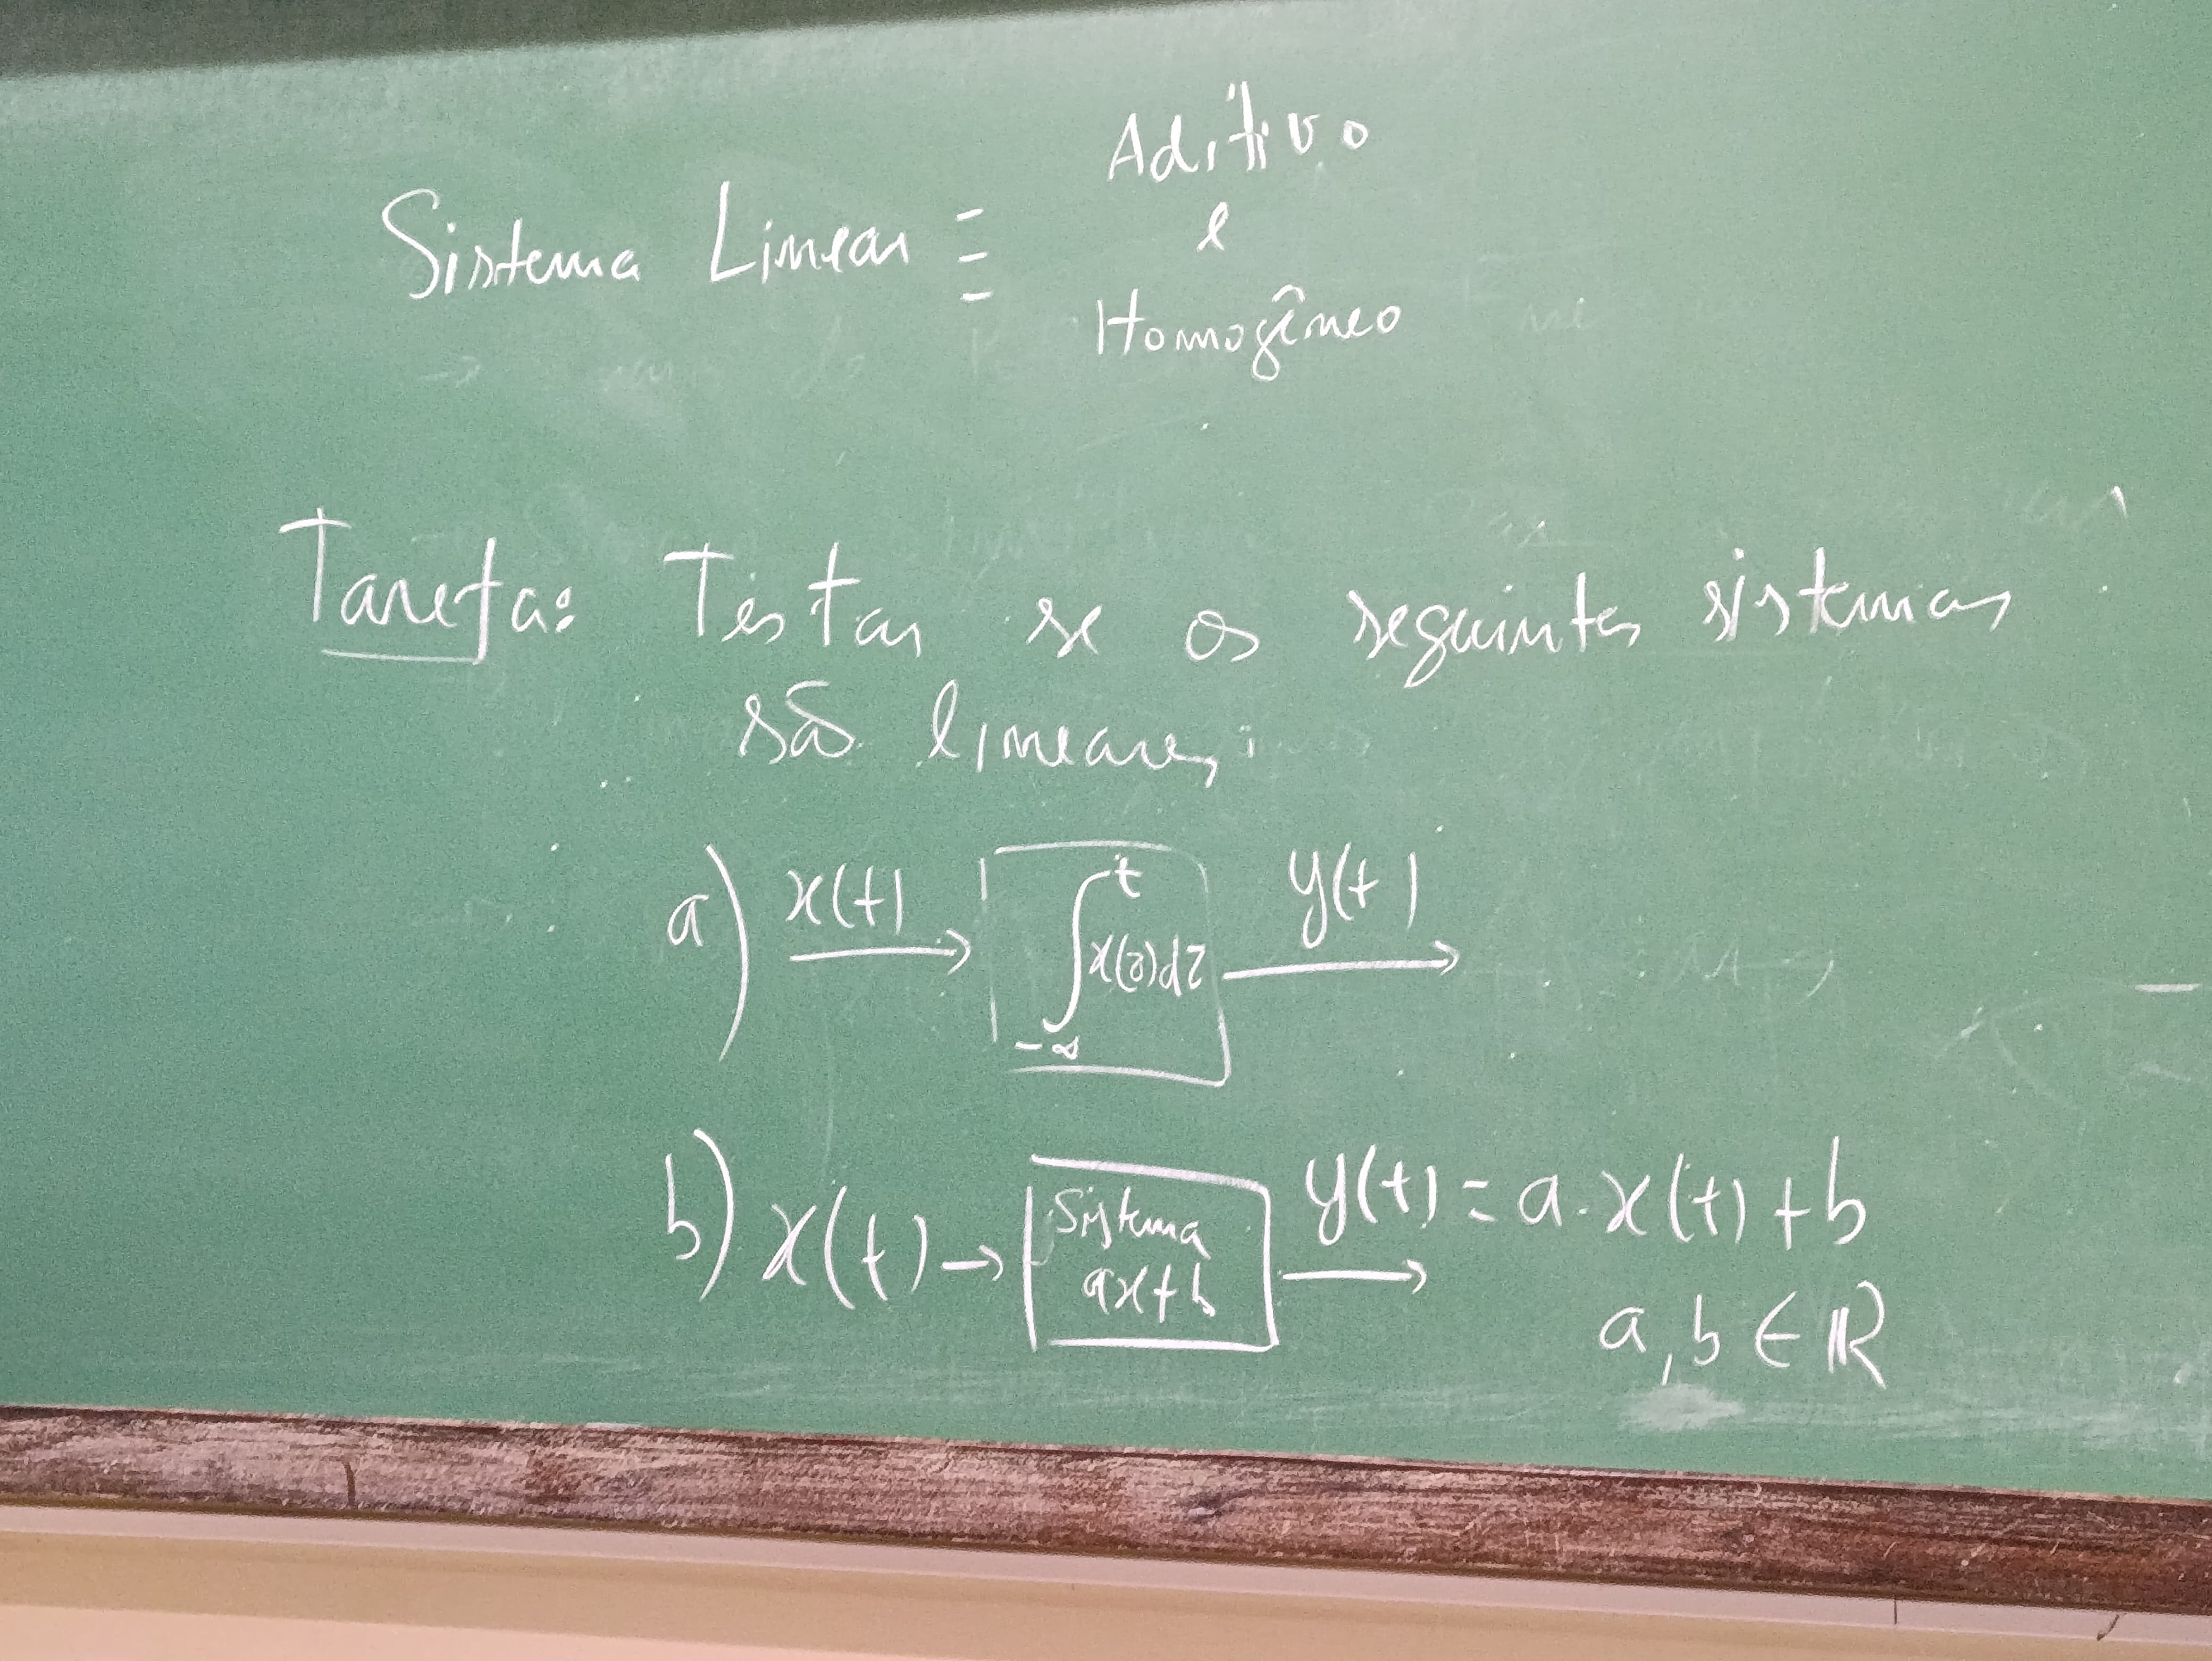 Aditivo
Sistema Linear ≡ e
Homogêneo
Tarefa: Testar se os seguintes sistemas
são lineares:
a) x(t) → ∫_{-∞}^{t} x(τ)dτ → y(t)
b) x(t) → Sistema ax+b → y(t) = a·x(t)+b
a,b ∈ ℝ